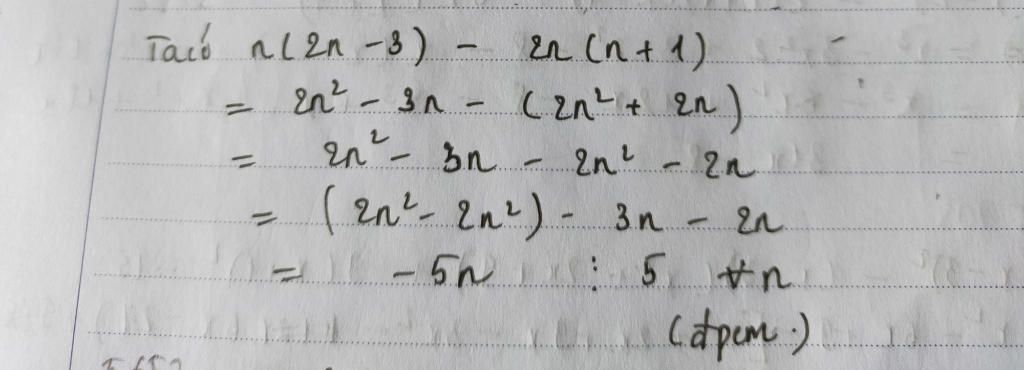 Ta có n(2n - 3) - 2n(n + 1)
= 2n² - 3n - (2n² + 2n)
= 2n² - 3n - 2n² - 2n
= (2n² - 2n²) - 3n - 2n
= - 5n ⋮ 5 ∀n
(đpcm.)